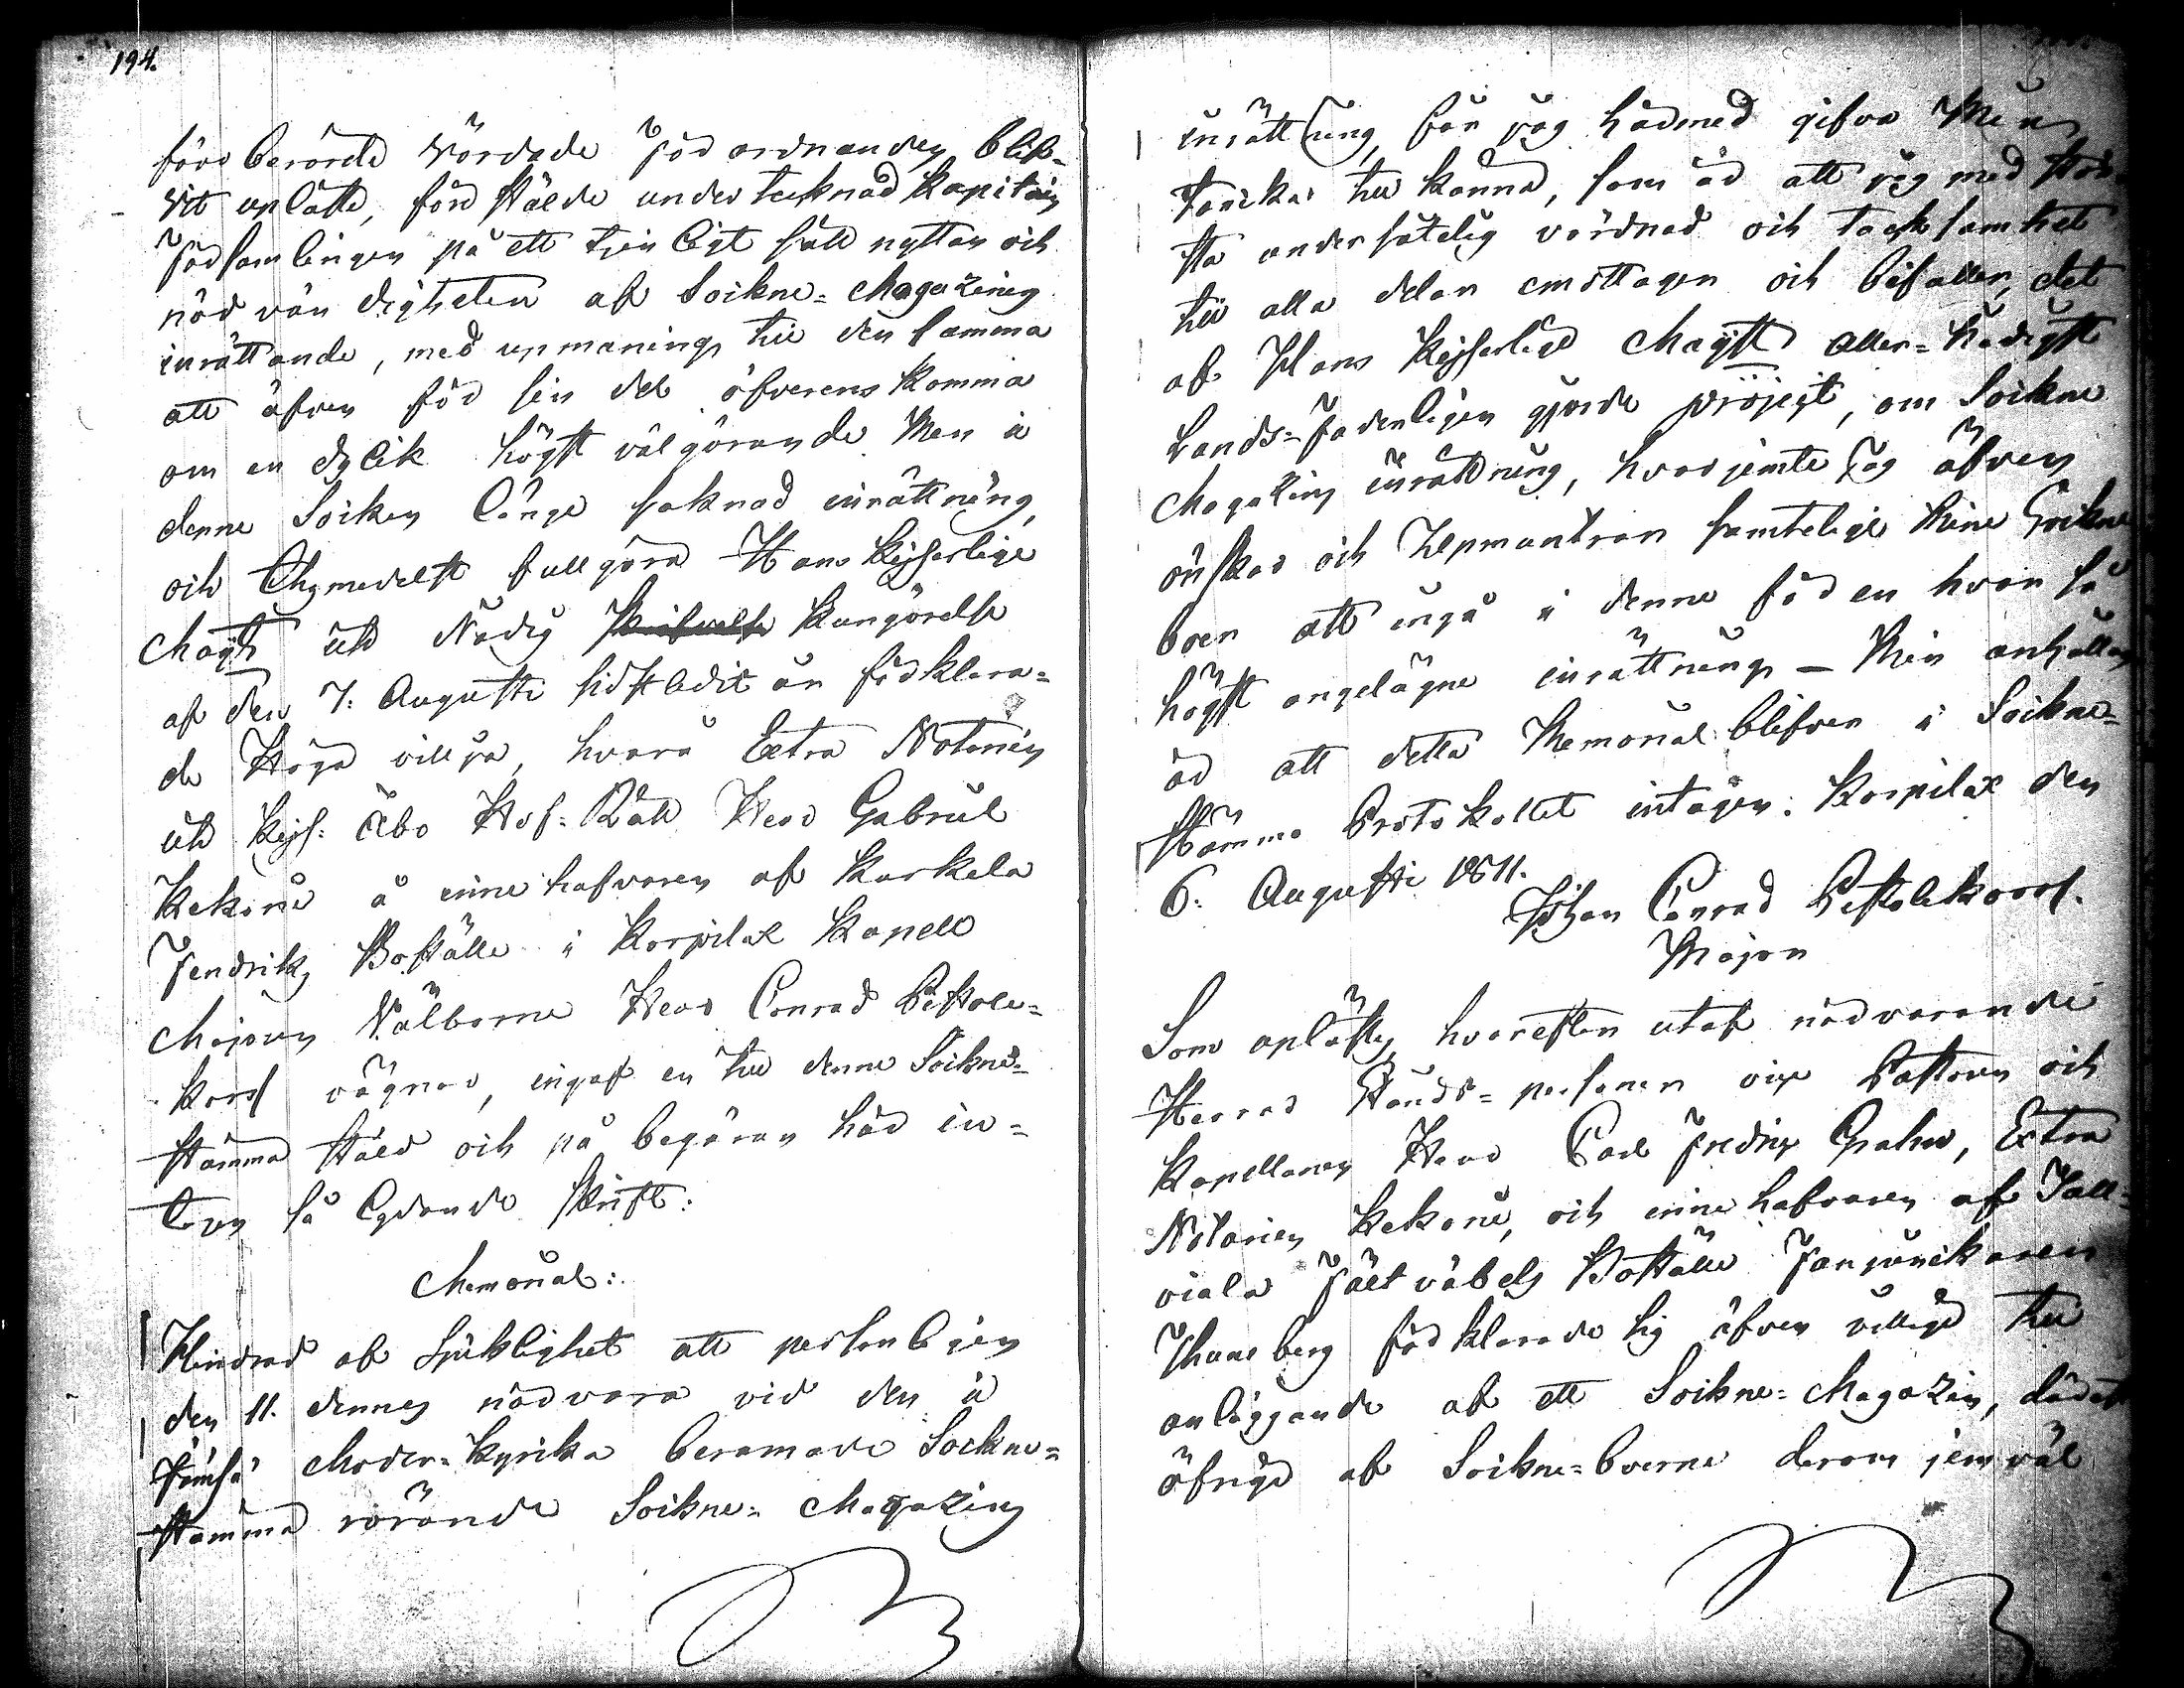 194.
före berörde vördade Förordnanden blif-
vit upläste, före stälde undertecknad Kapitain
Församlingen på ett tjenligt sätt nyttan och
nödvändigheten af Sockne=Magaziners
inrättande, med upmaning till den samma
att äfven för sin del öfverens komma
om en dylik högst välgörande men i
denne Socken länge saknad inrättning,
och thymedelst fullgöra Hans Kejserlige
Maijts uti Nådig Kungörelse
af den 7. Augusti sidstledit år förklara-
de Höga vilja, hvarå Extra Notarien
uti Kejs: Åbo Hof=Rätt Herr Gabriel
Kekonii å inne hafvaren af Karkela
Fendriks Boställe i Korpilax Kapell
Majoren Välborne Herr Conrad Pistole-
kors vägnar, ingaf en till denne Sockne-
stämma stäld och på begäran här in-
tagen så lydande skrift:
Memorial:
Hindrad af Sjuklighet att personligen
den 11. dennes närvara vid den i
Jämsä Moder=Kyrka beramade Sockne-
stämma rörande Sockne=Magazins
inrättning, får jag härmed gifva Mina
tanckar till känna, som är att jag med stör-
sta undersåtelig vördnad och tacksamhet
till alla delar emottager och bifaller, det
af Hans Kejserlige Maijst aller=Nådigst
Lands=Faderligen gjorde project, om Sockne
Magazins inrättning, hvarjemte Jag äfven
önskar och upmuntrar samtelige Mine Sockne
boer att ingå i denne för en hvar så
högst angelägne inrättning – Min anhållan
är att detta Memorial blifver i Sockne-
stämmo Protokollet intagen. Korpilax den
6. Augusti 1811.
Johan Conrad Pistolekors.
Major
Som uplästes, hvarefter utaf närvarande
Herrar Stånds=personer vice Pastorn och
Kapellanen Herr Carl Fredric Grahn, Extra
Notarien Kekonii, och inne hafvaren af Jall-
viala Fältväbels Boställe Fanjunckaren
Thuneberg förklarade sig äfven villige till
anläggande af ett Sockne=Magazin,
öfrige af Sockne=boerne derom jemväl